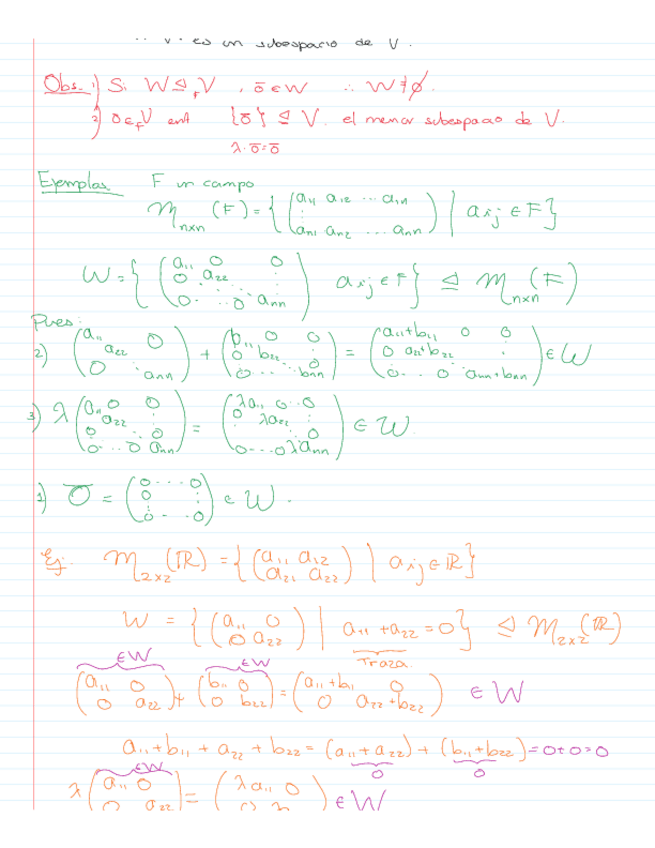 V. es un subespacio de V.
Obs. 1) Si W ⊴_F V , ō ∈ W ∴ W ≠ ∅.
2) ō ∈_F V ent {ō} ⊴ V. el menor subespacio de V.
λ·ō=ō
Ejemplos F un campo
M_{nxn}(F) = { ( a11 a12 ... a1n ; ⋮ ; an1 an2 ... ann ) | aij ∈ F }
W = { ( a11 0 0 ; 0 a22 ⋮ ; 0 ... 0 ann ) aij ∈ F } ⊴ M_{nxn}(F)
Pues:
2) ( a11 0 ; a22 ; 0 ann ) + ( b11 0 0 ; 0 b22 ⋮ 0 ; 0 ... bnn ) = ( a11+b11 0 0 ; 0 a22+b22 ⋮ ; 0 ... 0 ann+bnn ) ∈ W
3) λ ( a11 0 0 ; a22 ⋮ ; 0 ... 0 ; 0 ... 0 ann ) = ( λa11 0 ... 0 ; 0 λa22 ⋮ ; ⋮ 0 ; 0 ... 0 λann ) ∈ W.
1) Ō = ( 0 ... 0 ; 0 ⋮ ; ⋮ ; 0 ... 0 ) ∈ W.
Ej. M_{2x2}(ℝ) = { ( a11 a12 ; a21 a22 ) | aij ∈ ℝ }
W = { ( a11 0 ; 0 a22 ) | a11 + a22 = 0 } ⊴ M_{2x2}(ℝ)
∈W ∈W Traza.
( a11 0 ; 0 a22 ) + ( b11 0 ; 0 b22 ) = ( a11+b11 0 ; 0 a22+b22 ) ∈ W
a11 + b11 + a22 + b22 = (a11 + a22) + (b11 + b22) = 0+0=0
∈W 0 0
λ ( a11 0 ; 0 a22 ) = ( λa11 0 ; 0 λ ) ∈ W